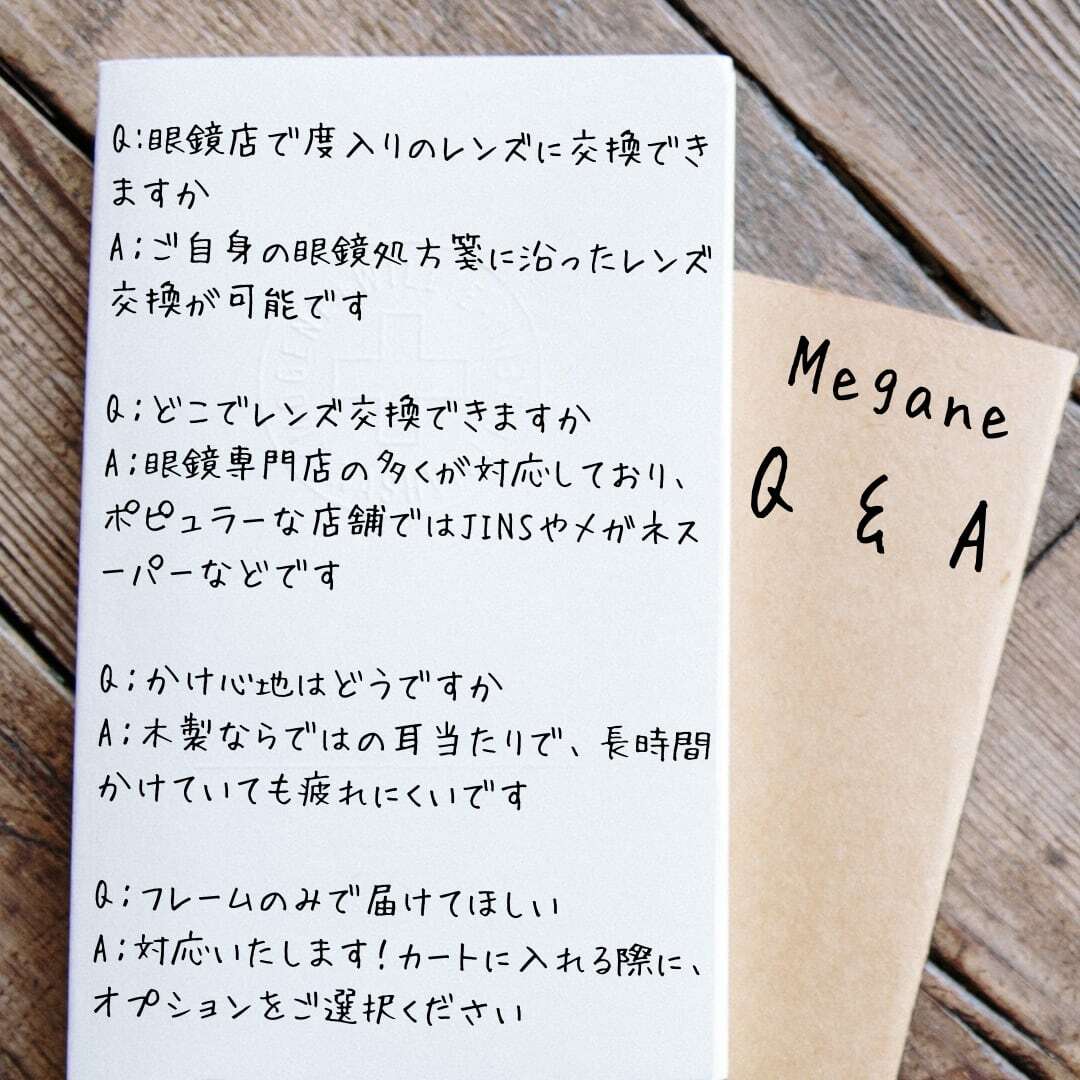 Q:眼鏡店で度入りのレンズに交換でき
ますか
A;ご自身の眼鏡処方箋に沿ったレンズ
交換が可能です
Q;どこでレンズ交換できますか
A;眼鏡専門店の多くが対応しており、
ポピュラーな店舗ではJINSやメガネス
ーパーなどです
Q;かけ心地はどうですか
A;木製ならではの耳当たりで、長時間
かけていても疲れにくいです
Q;フレームのみで届けてほしい
A;対応いたします!カートに入れる際に、
オプションをご選択ください
Megane
Q & A